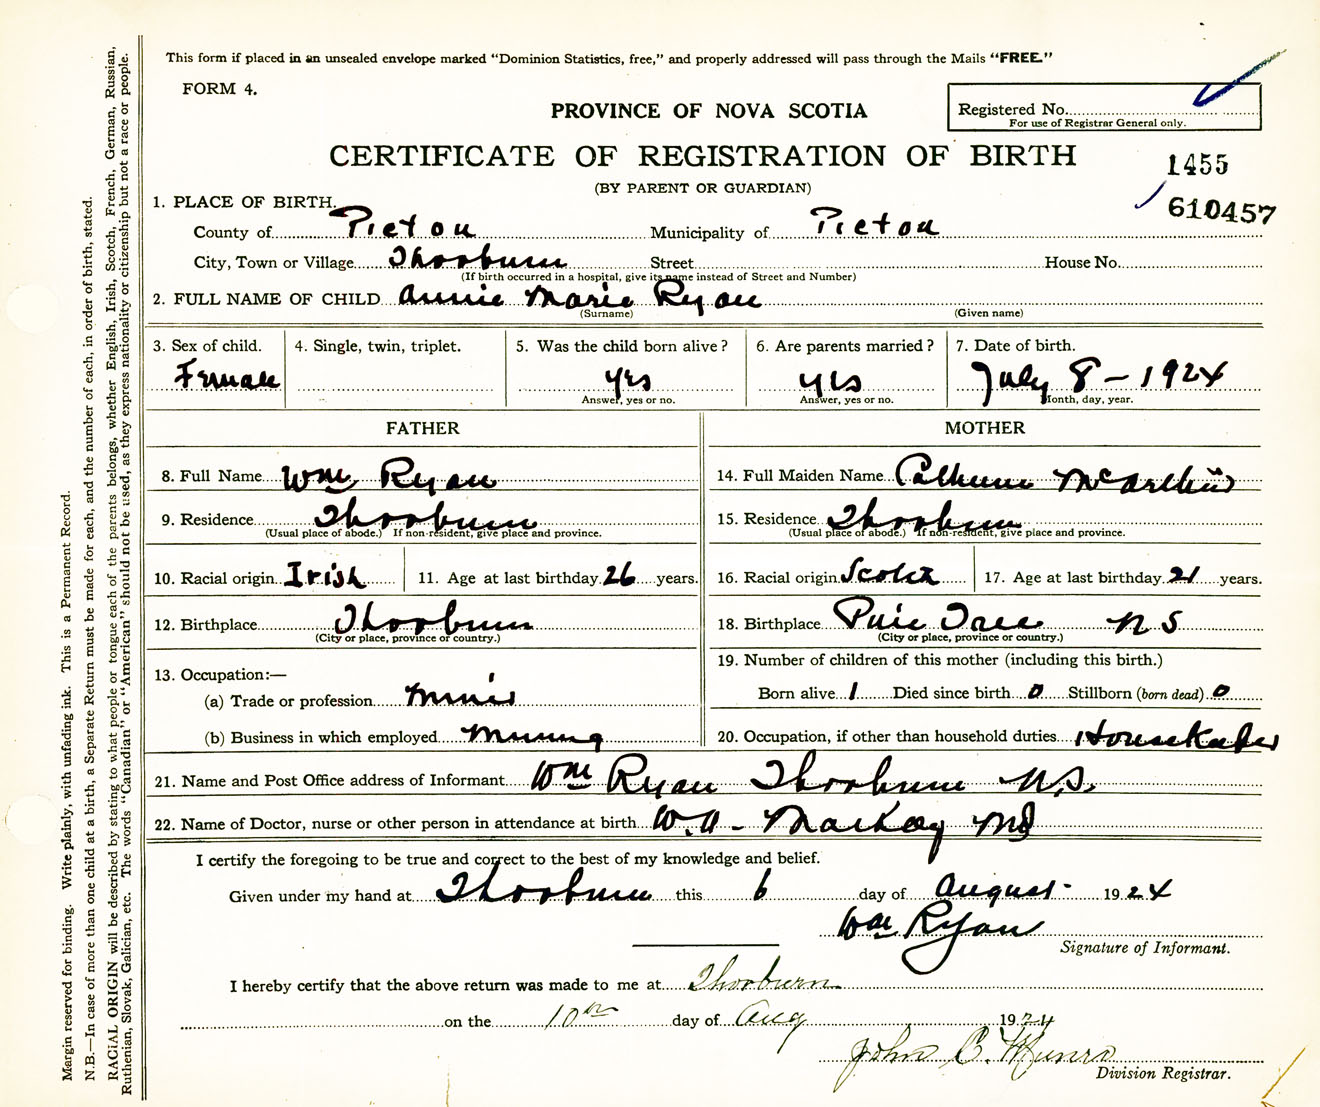 This form if placed in an unsealed envelope marked “Dominion Statistics, free,” and properly addressed will pass through the Mails “FREE.”
FORM 4.
PROVINCE OF NOVA SCOTIA
Registered No.
For use of Registrar General only.
CERTIFICATE OF REGISTRATION OF BIRTH
1455
(BY PARENT OR GUARDIAN)
610457
1. PLACE OF BIRTH.
County of Pictou Municipality of Pictou
City, Town or Village Thorburn Street House No.
(If birth occurred in a hospital, give its name instead of Street and Number)
2. FULL NAME OF CHILD Annie Marie Ryan
(Surname) (Given name)
3. Sex of child. 4. Single, twin, triplet. 5. Was the child born alive? 6. Are parents married? 7. Date of birth.
Female yes yes July 8 - 1924
Answer, yes or no. Answer, yes or no. Month, day, year.
FATHER MOTHER
8. Full Name Wm Ryan 14. Full Maiden Name McArthur
9. Residence Thorburn 15. Residence Thorburn
(Usual place of abode.) If non-resident, give place and province. (Usual place of abode.) If non-resident, give place and province.
10. Racial origin Irish 11. Age at last birthday 26 years. 16. Racial origin Scotch 17. Age at last birthday 21 years.
12. Birthplace Thorburn 18. Birthplace Pine Tree NS
(City or place, province or country.) (City or place, province or country.)
13. Occupation:— 19. Number of children of this mother (including this birth.)
(a) Trade or profession Miner Born alive 1 Died since birth 0 Stillborn (born dead) 0
(b) Business in which employed Mining 20. Occupation, if other than household duties
21. Name and Post Office address of Informant Wm Ryan Thorburn N.S.
22. Name of Doctor, nurse or other person in attendance at birth W.A - MacKay MD
I certify the foregoing to be true and correct to the best of my knowledge and belief.
Given under my hand at Thorburn this 6 day of August - 1924
Wm Ryan
Signature of Informant.
I hereby certify that the above return was made to me at Thorburn
on the 10th day of Aug 1924
John C. Munro
Division Registrar.
Margin reserved for binding. Write plainly, with unfading ink. This is a Permanent Record.
N.B.—In case of more than one child at a birth, a Separate Return must be made for each, and the number of each, in order of birth, stated.
RACIAL ORIGIN will be described by stating to what people or tongue each of the parents belongs, whether English, Irish, Scotch, French, German, Russian,
Ruthenian, Slovak, Galician, etc. The words “Canadian” or “American” should not be used, as they express nationality or citizenship but not a race or people.